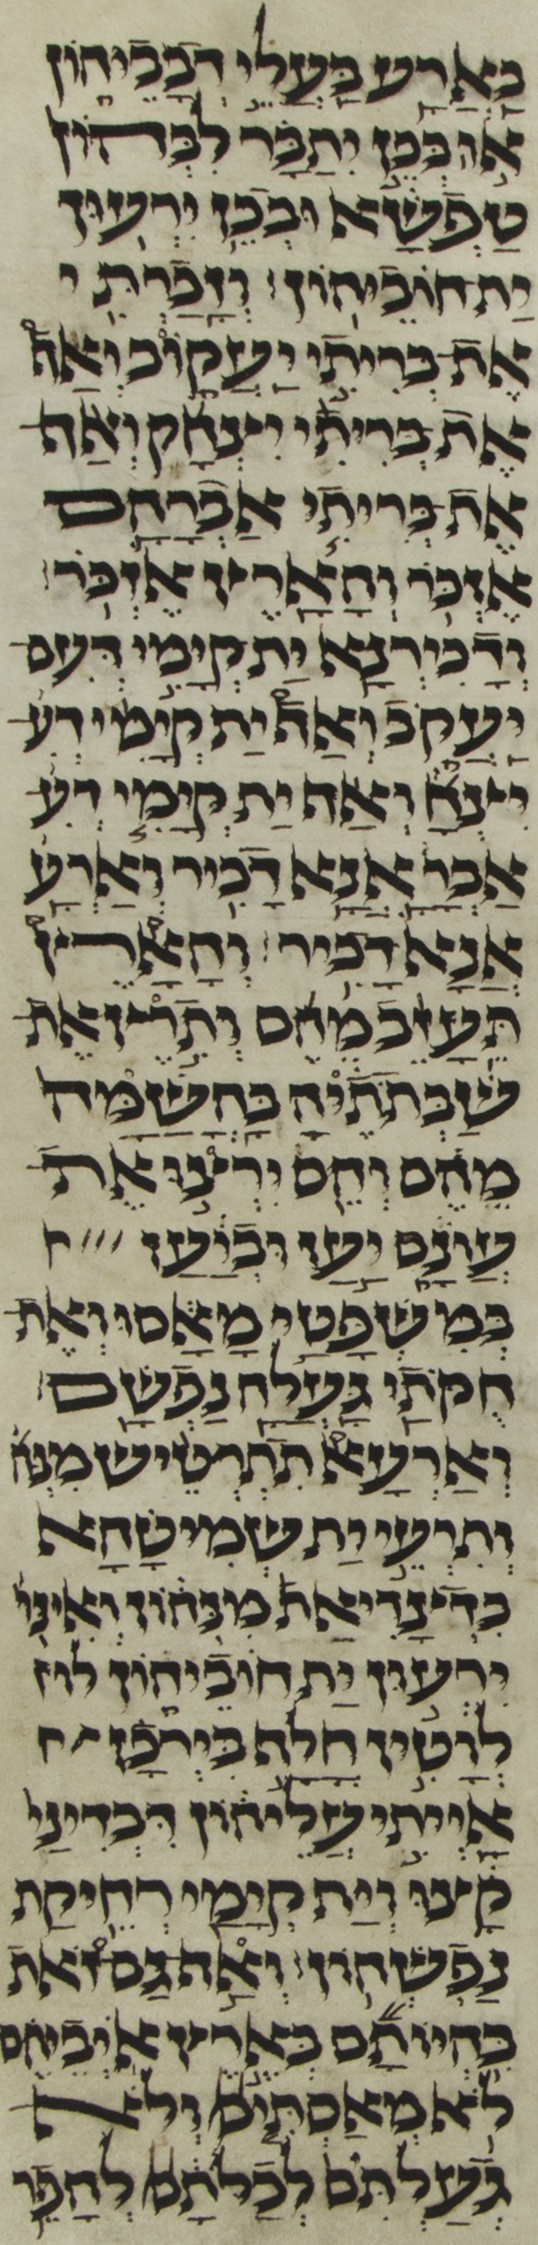 בַּאֲרַע בַּעֲלֵי דְבָבֵיהוֹן
אוֹ בְּכֵן יִתְּבַר לִבְּהוֹן
טַפְשָׁא וּבְכֵן יִרְעוּן
יַת חוֹבֵיהוֹן׃ וְזָכַרְתִּי
אֶת בְּרִיתִי יַעֲקוֹב וְאַף
אֶת בְּרִיתִי יִצְחָק וְאַף
אֶת בְּרִיתִי אַבְרָהָם
אֶזְכֹּר וְהָאָרֶץ אֶזְכֹּר׃
וְדָכִירְנָא יַת קְיָמִי דְּעִם
יַעֲקֹב וְאַף יַת קְיָמִי דְעִ
יִצְחָ וְאַף יַת קְיָמִי דְעִ
אַבְרָ אֲנָא דָּכִיר וְאַרְעָ
אֲנָא דָּכִיר׃ וְהָאָרֶץ
תֵּעָזֵב מֵהֶם וְתִרֶץ אֶת
שַׁבְּתֹתֶיהָ בָּהְשַׁמָּה
מֵהֶם וְהֵם יִרְצוּ אֶת
עֲוֹנָם יַעַן וּבְיַעַן
בְּמִשְׁפָּטַי מָאָסוּ וְאֶת
חֻקֹּתַי גָּעֲלָה נַפְשָׁם׃
וְאַרְעָא תִּתְרְטֵישׁ מִנְּהוֹ
וְתִרְעֵי יַת שְׁמִיטָּהָא
בִּדְצָדִיאַת מִנְּהוֹן וְאִינּוּ
יִרְעוּן יַת חוֹבֵיהוֹן לוֹ
לְוָטִין חֲלָף בִּירְכָן
אַיְיתִי עֲלֵיהוֹן דִּבְדִינַי
קָצוּ וְיַת קְיָמַי רְחִיקַת
נַפְשְׁהוֹן׃ וְאַף גַּם זֹאת
בִּהְיוֹתָם בְּאֶרֶץ אֹיְבֵיהֶם
לֹא מְאַסְתִּים וְלֹא
גְעַלְתִּים לְכַלֹּתָם לְהָפֵר